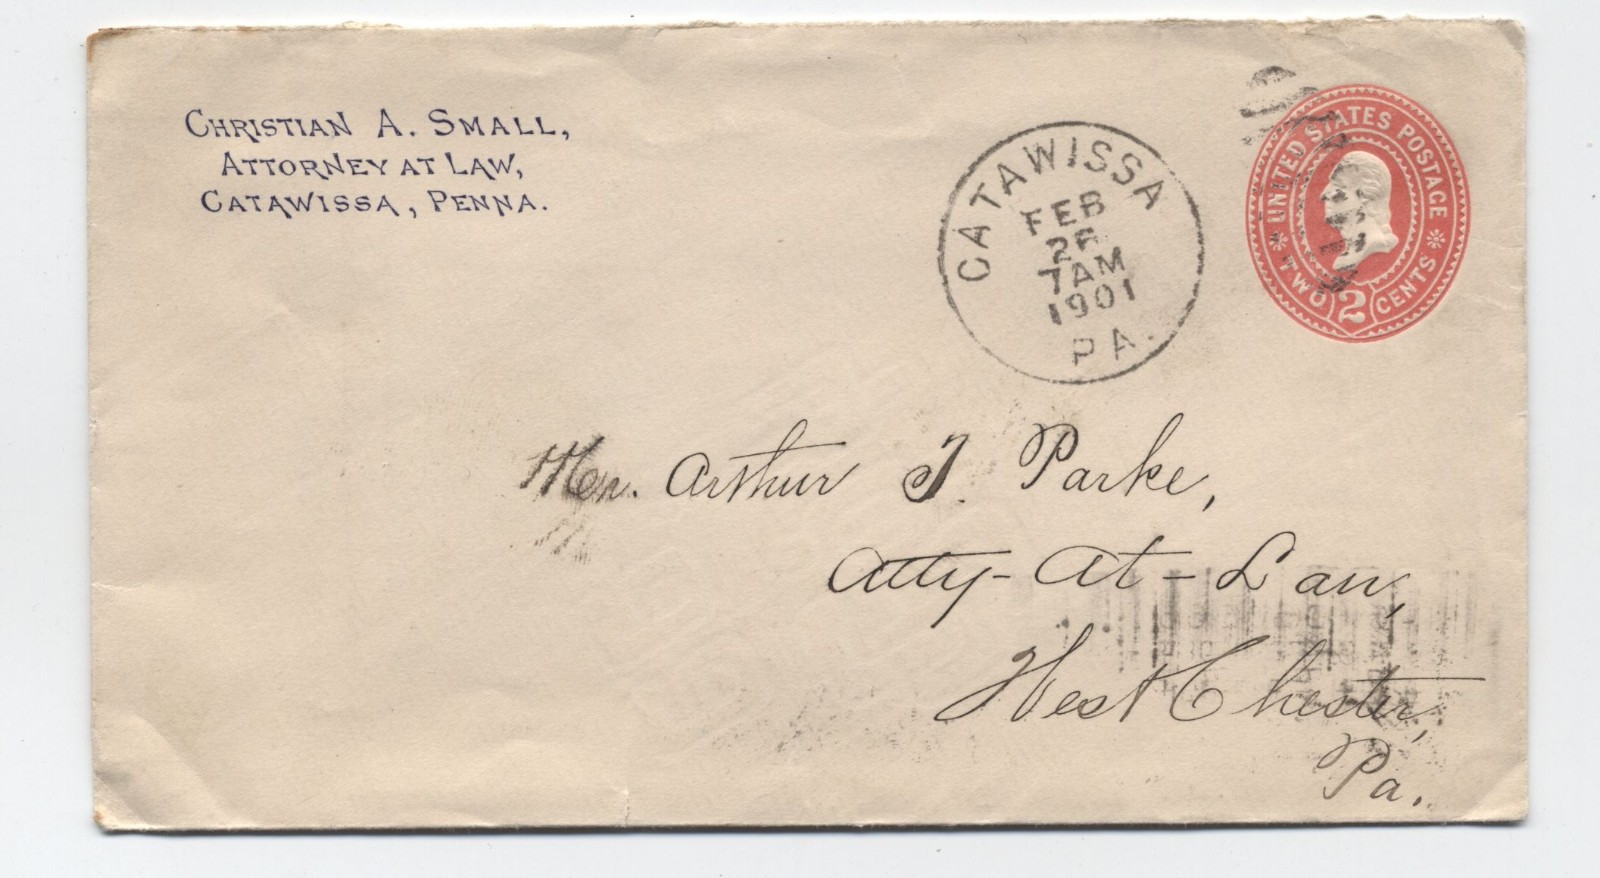 CHRISTIAN A. SMALL,
ATTORNEY AT LAW,
CATAWISSA, PENNA.
CATAWISSA
FEB
7AM
1901
PA.
UNITED STATES POSTAGE
TWO 2 CENTS
Mr. Arthur T. Parke,
Atty-At-Law,
West Chester,
Pa.